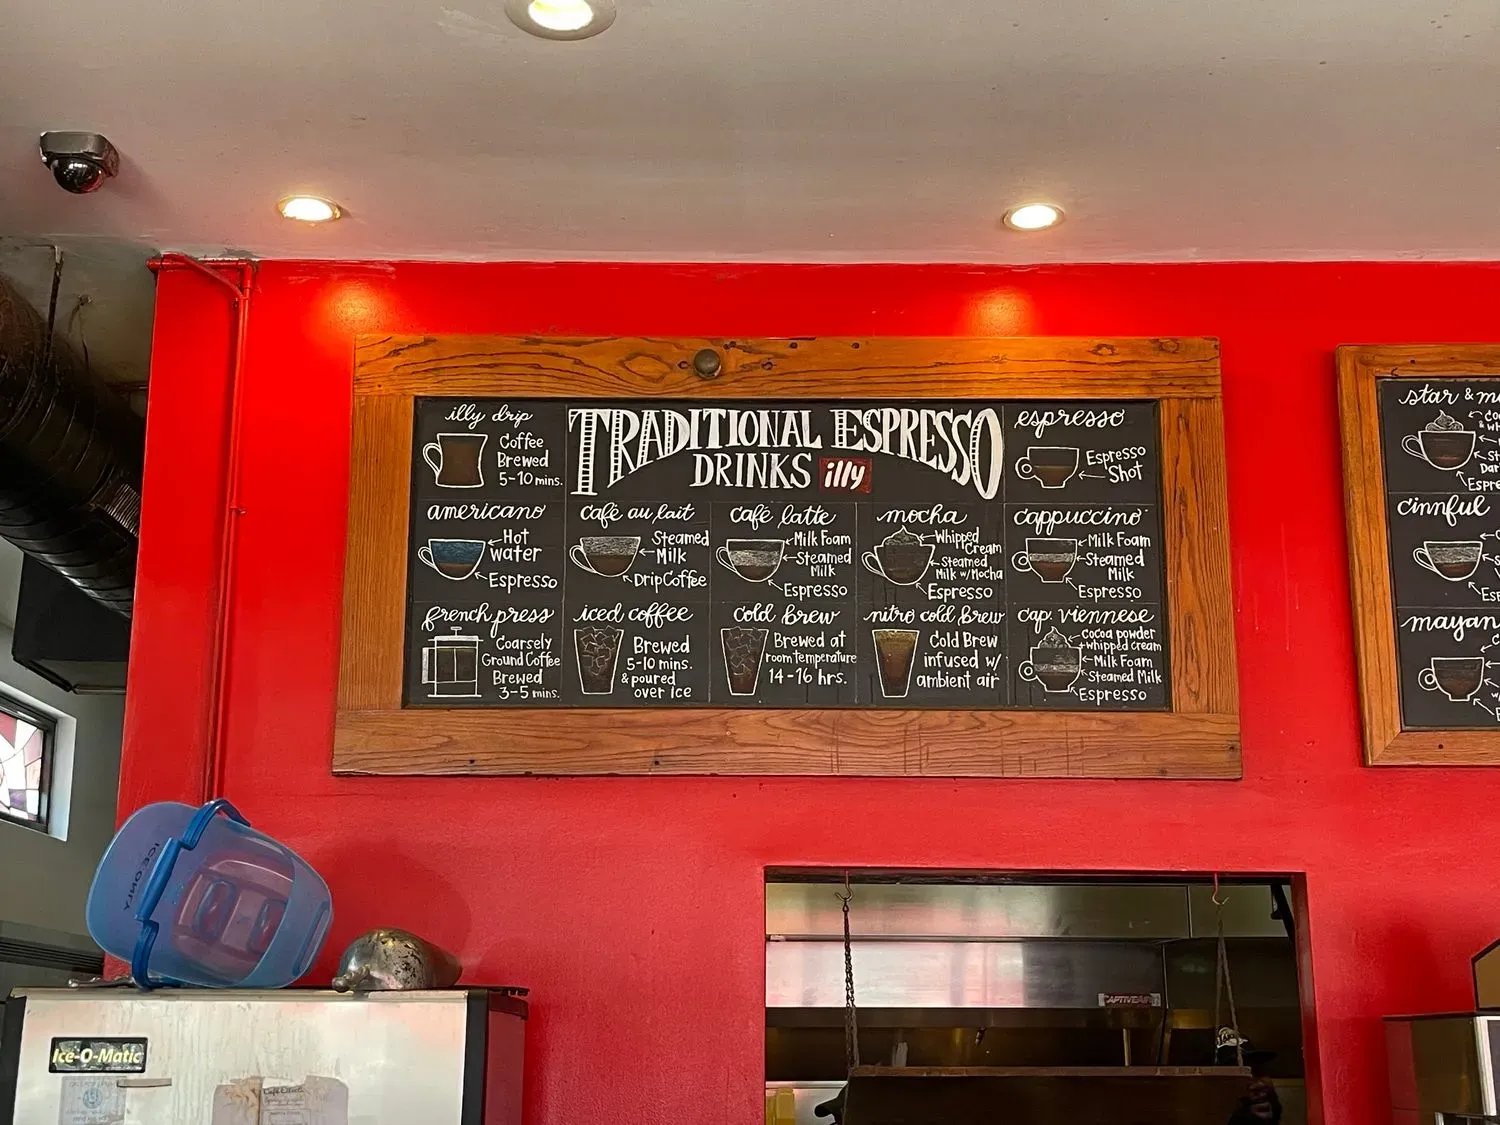 illy drip
Coffee
Brewed
5-10 mins.
TRADITIONAL ESPRESSO
DRINKS illy
espresso
Espresso
Shot
americano
Hot
water
Espresso
café au lait
Steamed
Milk
Drip Coffee
café latte
Milk Foam
Steamed
Milk
Espresso
mocha
Whipped
Cream
Steamed
Milk w/Mocha
Espresso
cappuccino
Milk Foam
Steamed
Milk
Espresso
french press
Coarsely
Ground Coffee
Brewed
3-5 mins.
iced coffee
Brewed
5-10 mins.
& poured
over Ice
cold brew
Brewed at
room temperature
14-16 hrs.
nitro cold brew
Cold Brew
infused w/
ambient air
cap. viennese
cocoa powder
+whipped cream
Milk Foam
Steamed Milk
Espresso
star &
cinnful
mayan
ICE ONLY
Ice-O-Matic
CAPTIVEAIRE